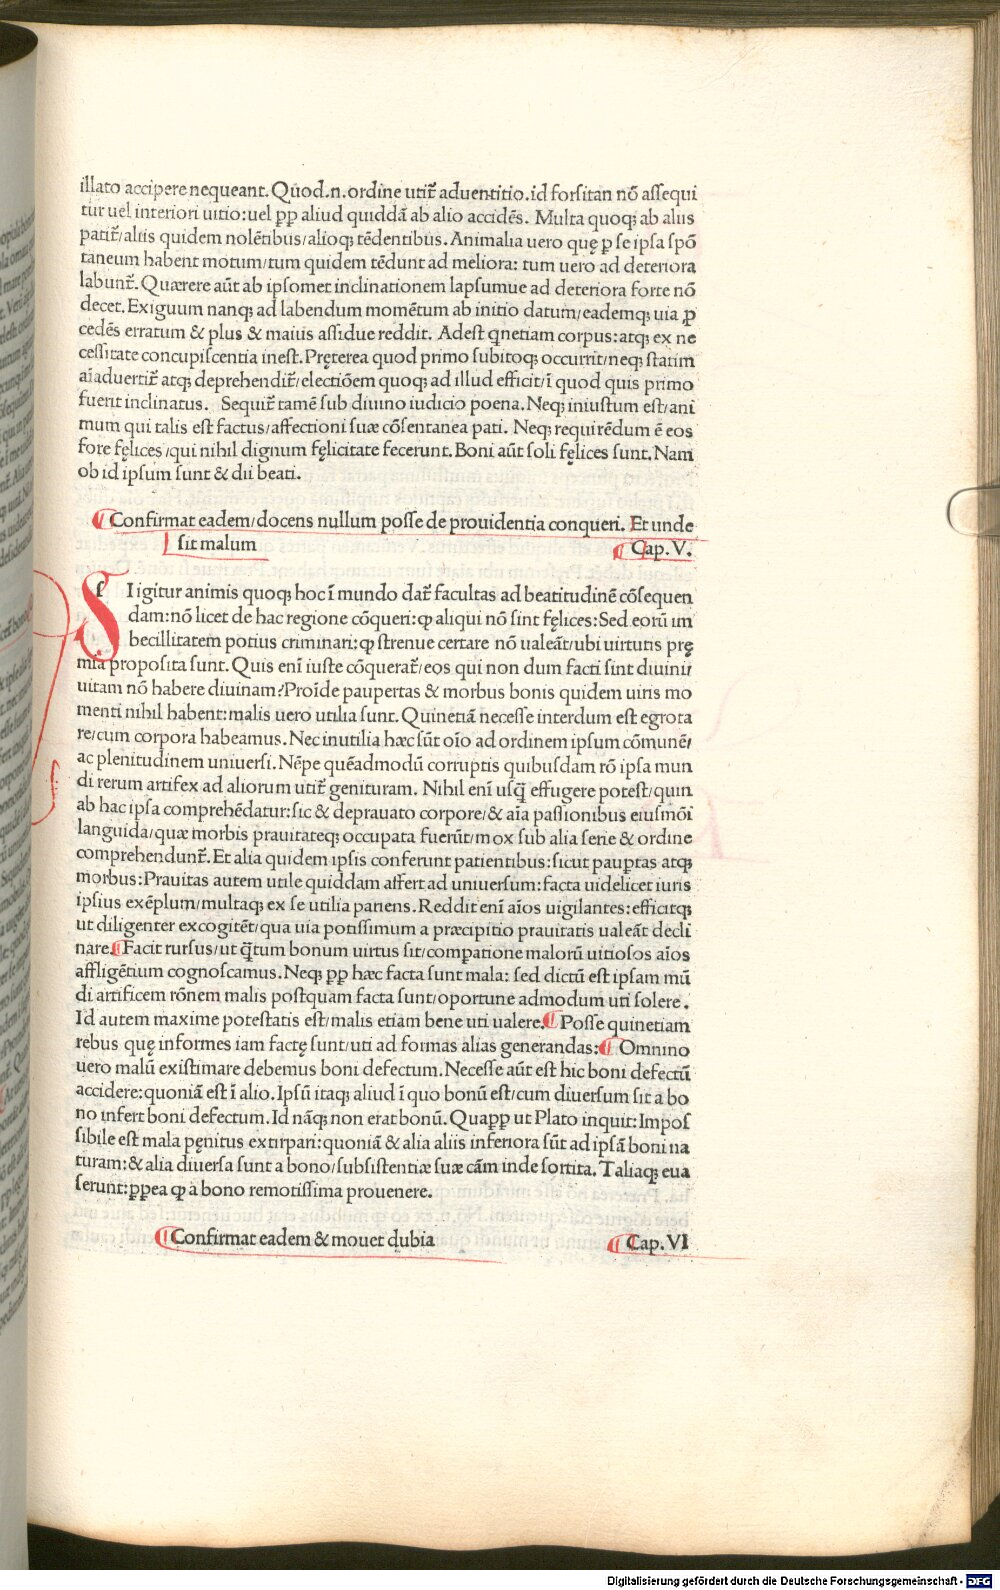 illato accipere nequeant. Quod.n.ordine utit᷑ aduentitio.id forsitan nō assequi
tur uel interiori uitio:uel ꝓp aliud quiddā ab alio accidēs. Multa quoqꝫ ab aliis
patit᷑/aliis quidem nolētibus/alioqꝫ tēdentibus. Animalia uero quę ꝑ se ipsa spō
taneum habent motum/tum quidem tēdunt ad meliora: tum uero ad deteriora
labunt᷑. Quærere aūt ab ipsomet inclinationem lapsumue ad deteriora forte nō
decet. Exiguum nanqꝫ ad labendum momētum ab initio datum/eademqꝫ uia ꝓ
cedēs erratum & plus & maius assidue reddit. Adest qnetiam corpus:atqꝫ ex ne
cessitate concupiscentia inest. Pręterea quod primo subitoqꝫ occurrit/neqꝫ statim
aīaduertit᷑ atqꝫ deprehendit᷑/electiōem quoqꝫ ad illud efficit/ī quod quis primo
fuerit inclinatus. Sequit᷑ tamē sub diuino iudicio poena. Neqꝫ iniustum est/ani
mum qui talis est factus/affectioni suæ cōsentanea pati. Neqꝫ requirēdum ē eos
fore fęlices/qui nihil dignum fęlicitate fecerunt. Boni aūt soli fęlices sunt. Nam
ob id ipsum sunt & dii beati.
¶Confirmat eadem/docens nullum posse de prouidentia conqueri. Et unde
sit malum ¶Cap.V.
S I igitur animis quoqꝫ hoc ī mundo dat᷑ facultas ad beatitudinē cōsequen
dam:nō licet de hac regione cōqueri:ꝙ aliqui nō sint fęlices:Sed eorū im
becillitatem potius criminari:ꝙ strenue certare nō ualeāt/ubi uirtutis prę
mia proposita sunt. Quis enī iuste cōquerat᷑/eos qui non dum facti sint diuini/
uitam nō habere diuinam?Proīde paupertas & morbus bonis quidem uiris mo
menti nihil habent:malis uero utilia sunt. Quinetiā necesse interdum est egrota
re/cum corpora habeamus. Nec inutilia hæc sūt oīo ad ordinem ipsum cōmunē/
ac plenitudinem uniuersi. Nēpe quēadmodū corruptis quibusdam rō ipsa mun
di rerum artifex ad aliorum utit᷑ genituram. Nihil enī usq̄ effugere potest/quin
ab hac ipsa comprehēdatur:sic & deprauato corpore/& aīa passionibus eiusmōi
languida/quæ morbis prauitateqꝫ occupata fuerūt/mox sub alia serie & ordine
comprehendunt᷑. Et alia quidem ipsis conferunt patientibus:sicut pauꝑtas atqꝫ
morbus:Prauitas autem utile quiddam affert ad uniuersum:facta uidelicet iuris
ipsius exēplum/multaqꝫ ex se utilia pariens. Reddit enī aīos uigilantes:efficitqꝫ
ut diligenter excogitēt/qua uia potissimum a præcipitio prauitatis ualeāt decli
nare.¶Facit rursus/ut q̄tum bonum uirtus sit/comꝑatione malorū uitiosos aīos
affligētium cognoscamus. Neqꝫ ꝓp hæc facta sunt mala: sed dictū est ipsam mū
di artificem rōnem malis postquam facta sunt/oportune admodum uti solere.
Id autem maxime potestatis est/malis etiam bene uti ualere.¶Posse quinetiam
rebus quę informes iam factę sunt/uti ad formas alias generandas:¶Omnino
uero malū existimare debemus boni defectum. Necesse aūt est hic boni defectū
accidere:quoniā est ī alio. Ipsū itaqꝫ aliud ī quo bonū est/cum diuersum sit a bo
no infert boni defectum. Id nāqꝫ non erat bonū. Quaꝓp ut Plato inquit:Impos
sibile est mala pęnitus extirpari:quoniā & alia aliis inferiora sūt ad ipsā boni na
turam:& alia diuersa sunt a bono/subsistentiæ suæ cām inde sortita. Taliaqꝫ eua
serunt:ꝓpea ꝙ a bono remotissima prouenere.
¶Confirmat eadem & mouet dubia ¶Cap.VI
Digitalisierung gefördert durch die Deutsche Forschungsgemeinschaft - DFG